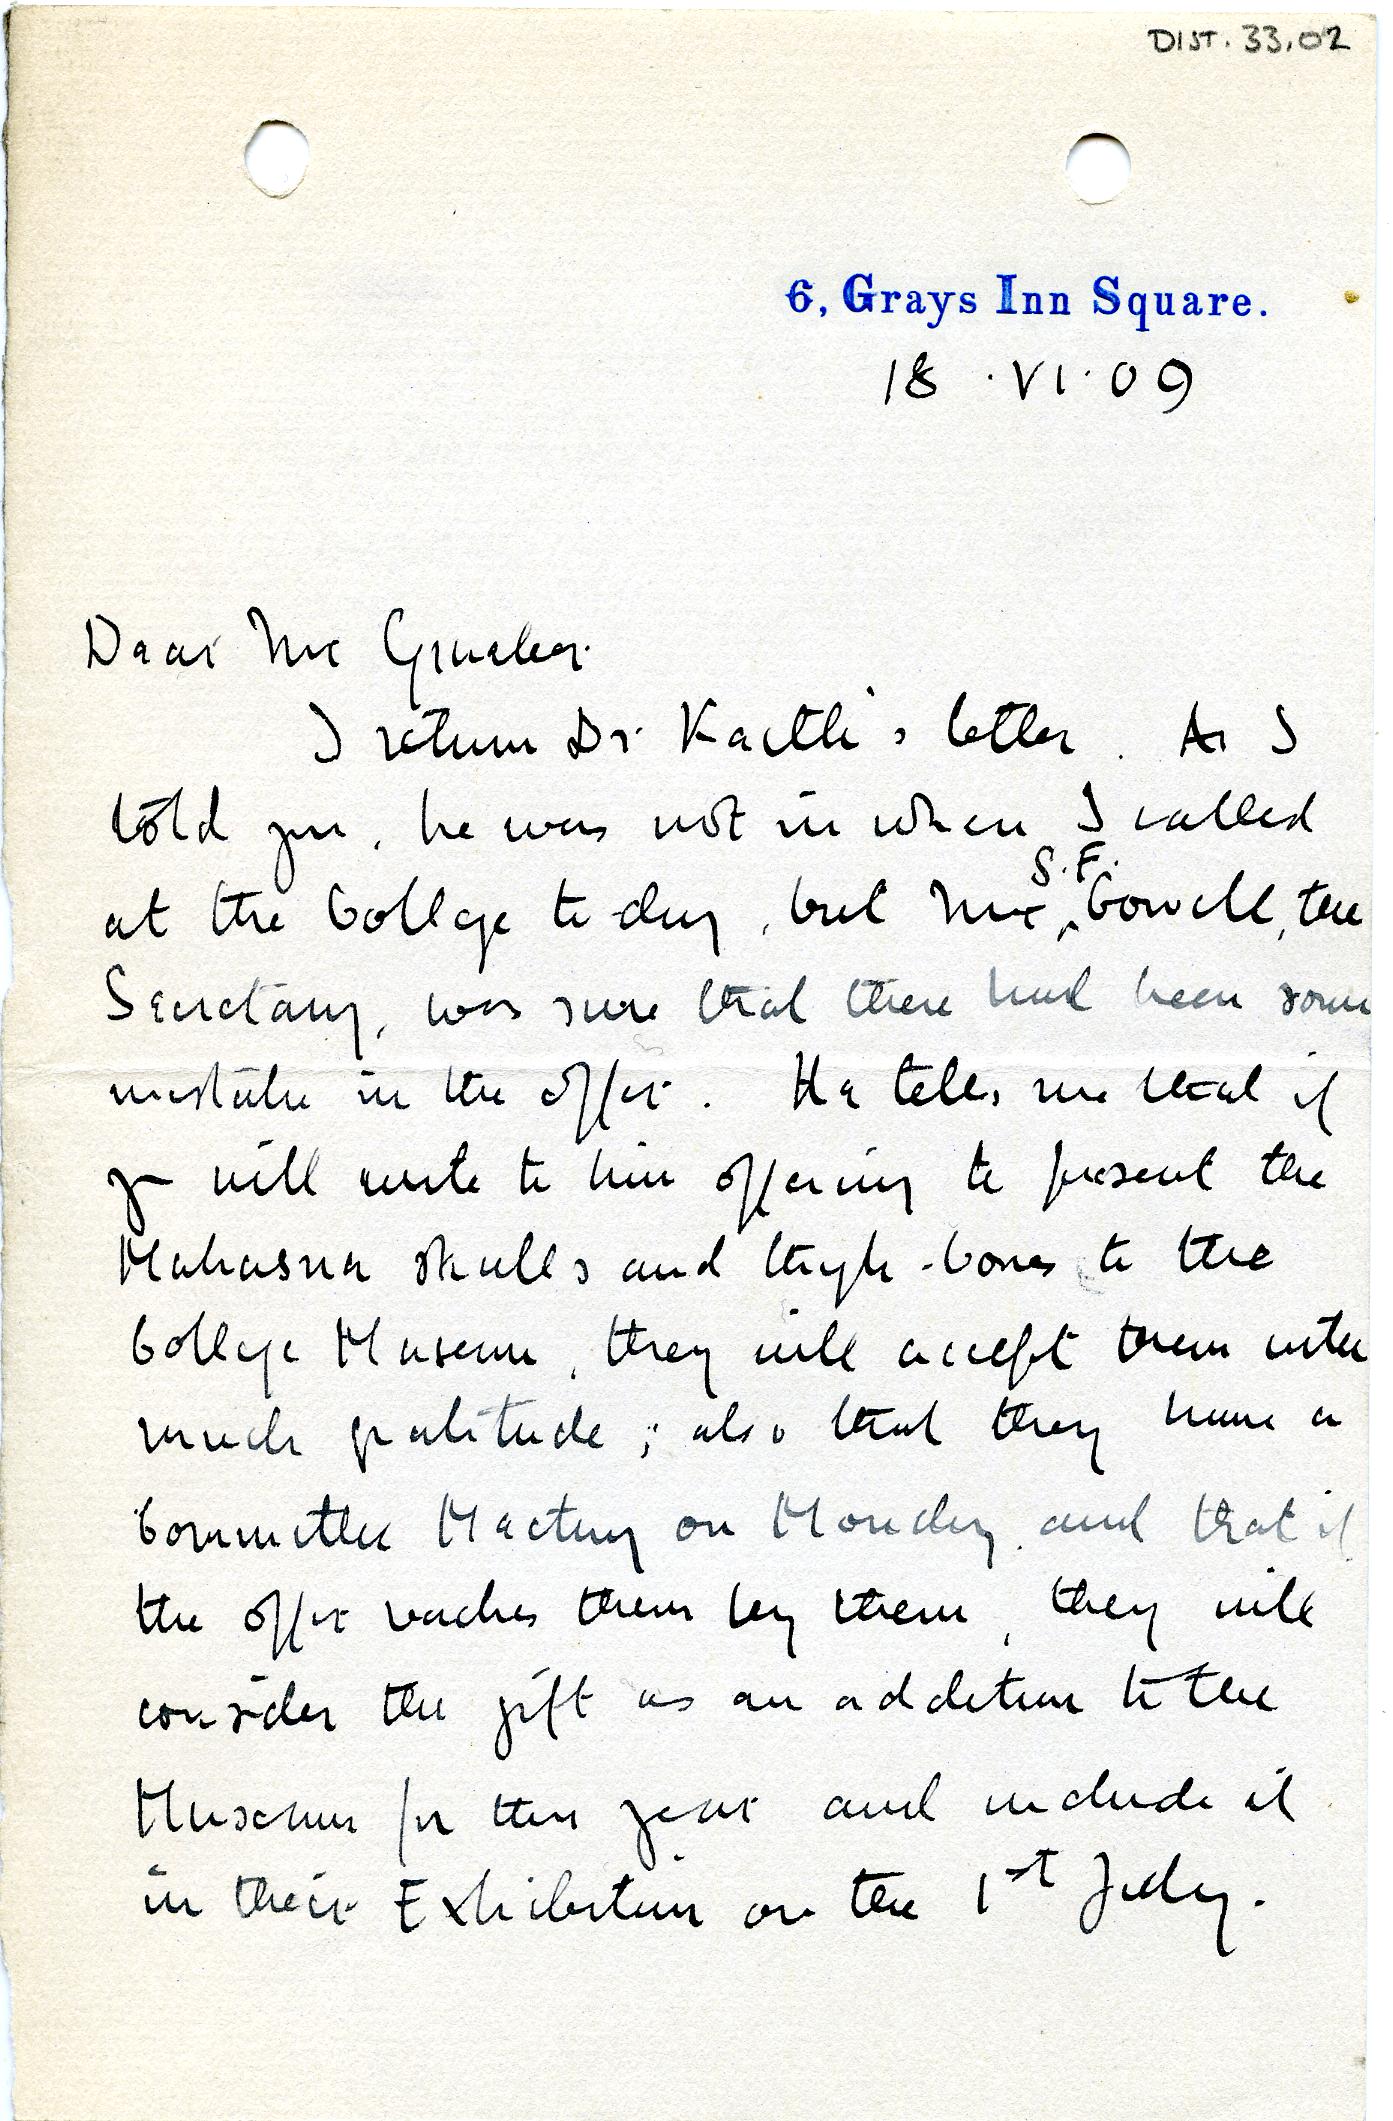 DIST. 33.02
6, Grays Inn Square.
18 . VI . 09
Dear Mr Grueber.
I return Dr. Keith's letter. As I
told you, he was not in when I called
at the College to-day, but Mr S.F. Cowell, the
Secretary, was sure that there had been some
mistake in the offer. He tells me that if
you will write to him offering to present the
Mahasna skulls and thigh-bones to the
College Museum, they will accept them with
much gratitude; also that they have a
Committee Meeting on Monday and that if
the offer reaches them by them, they will
consider the gift as an addition to the
Museum for this year and include it
in their Exhibition on the 1st July.